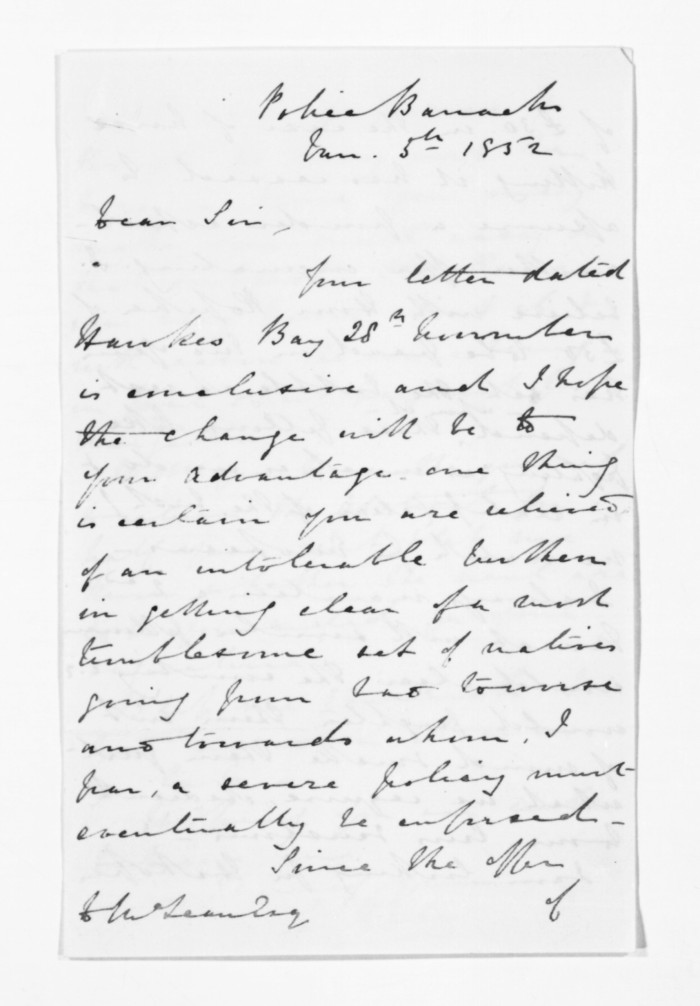 Police Barracks
Jan. 5th 1852
Dear Sir,
Your letter dated
Hawkes Bay 28th November
is conclusive and I hope
the change will be to
your advantage - one thing
is certain you are relieved
of an intolerable burthen
in getting clear of a most
troublesome set of natives
going from bad to worse
and towards whom, I
fear, a severe policy must
eventually be enforced -
Since the offer
D McLean Esq
of